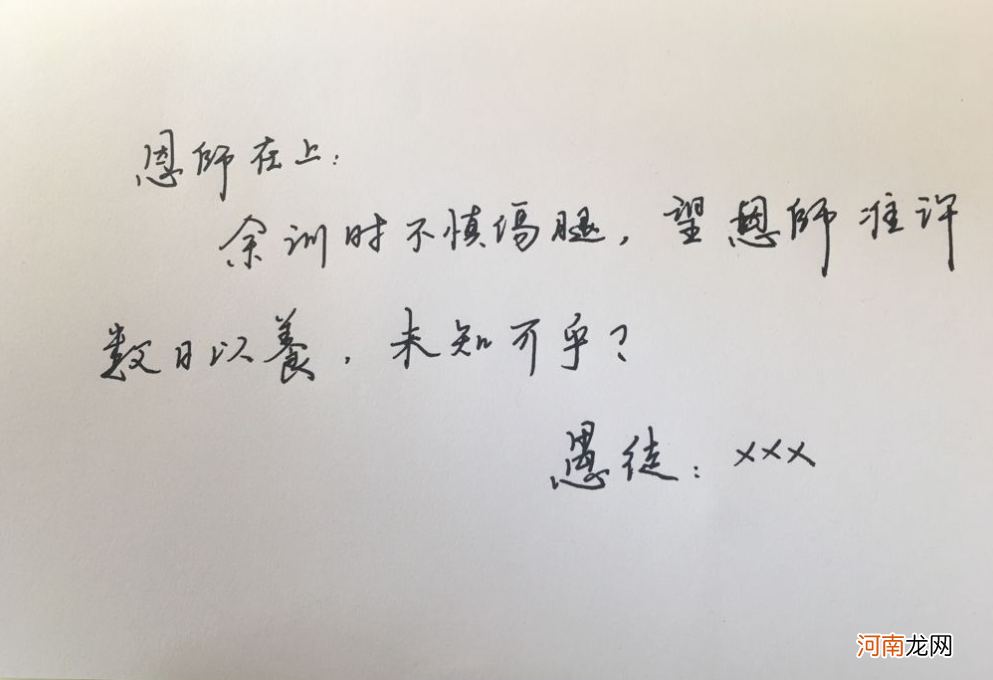 恩師在上：
余训时不慎傷腿，望恩師准许
数日以養，未知可乎？
愚徒：×××
河南龙网